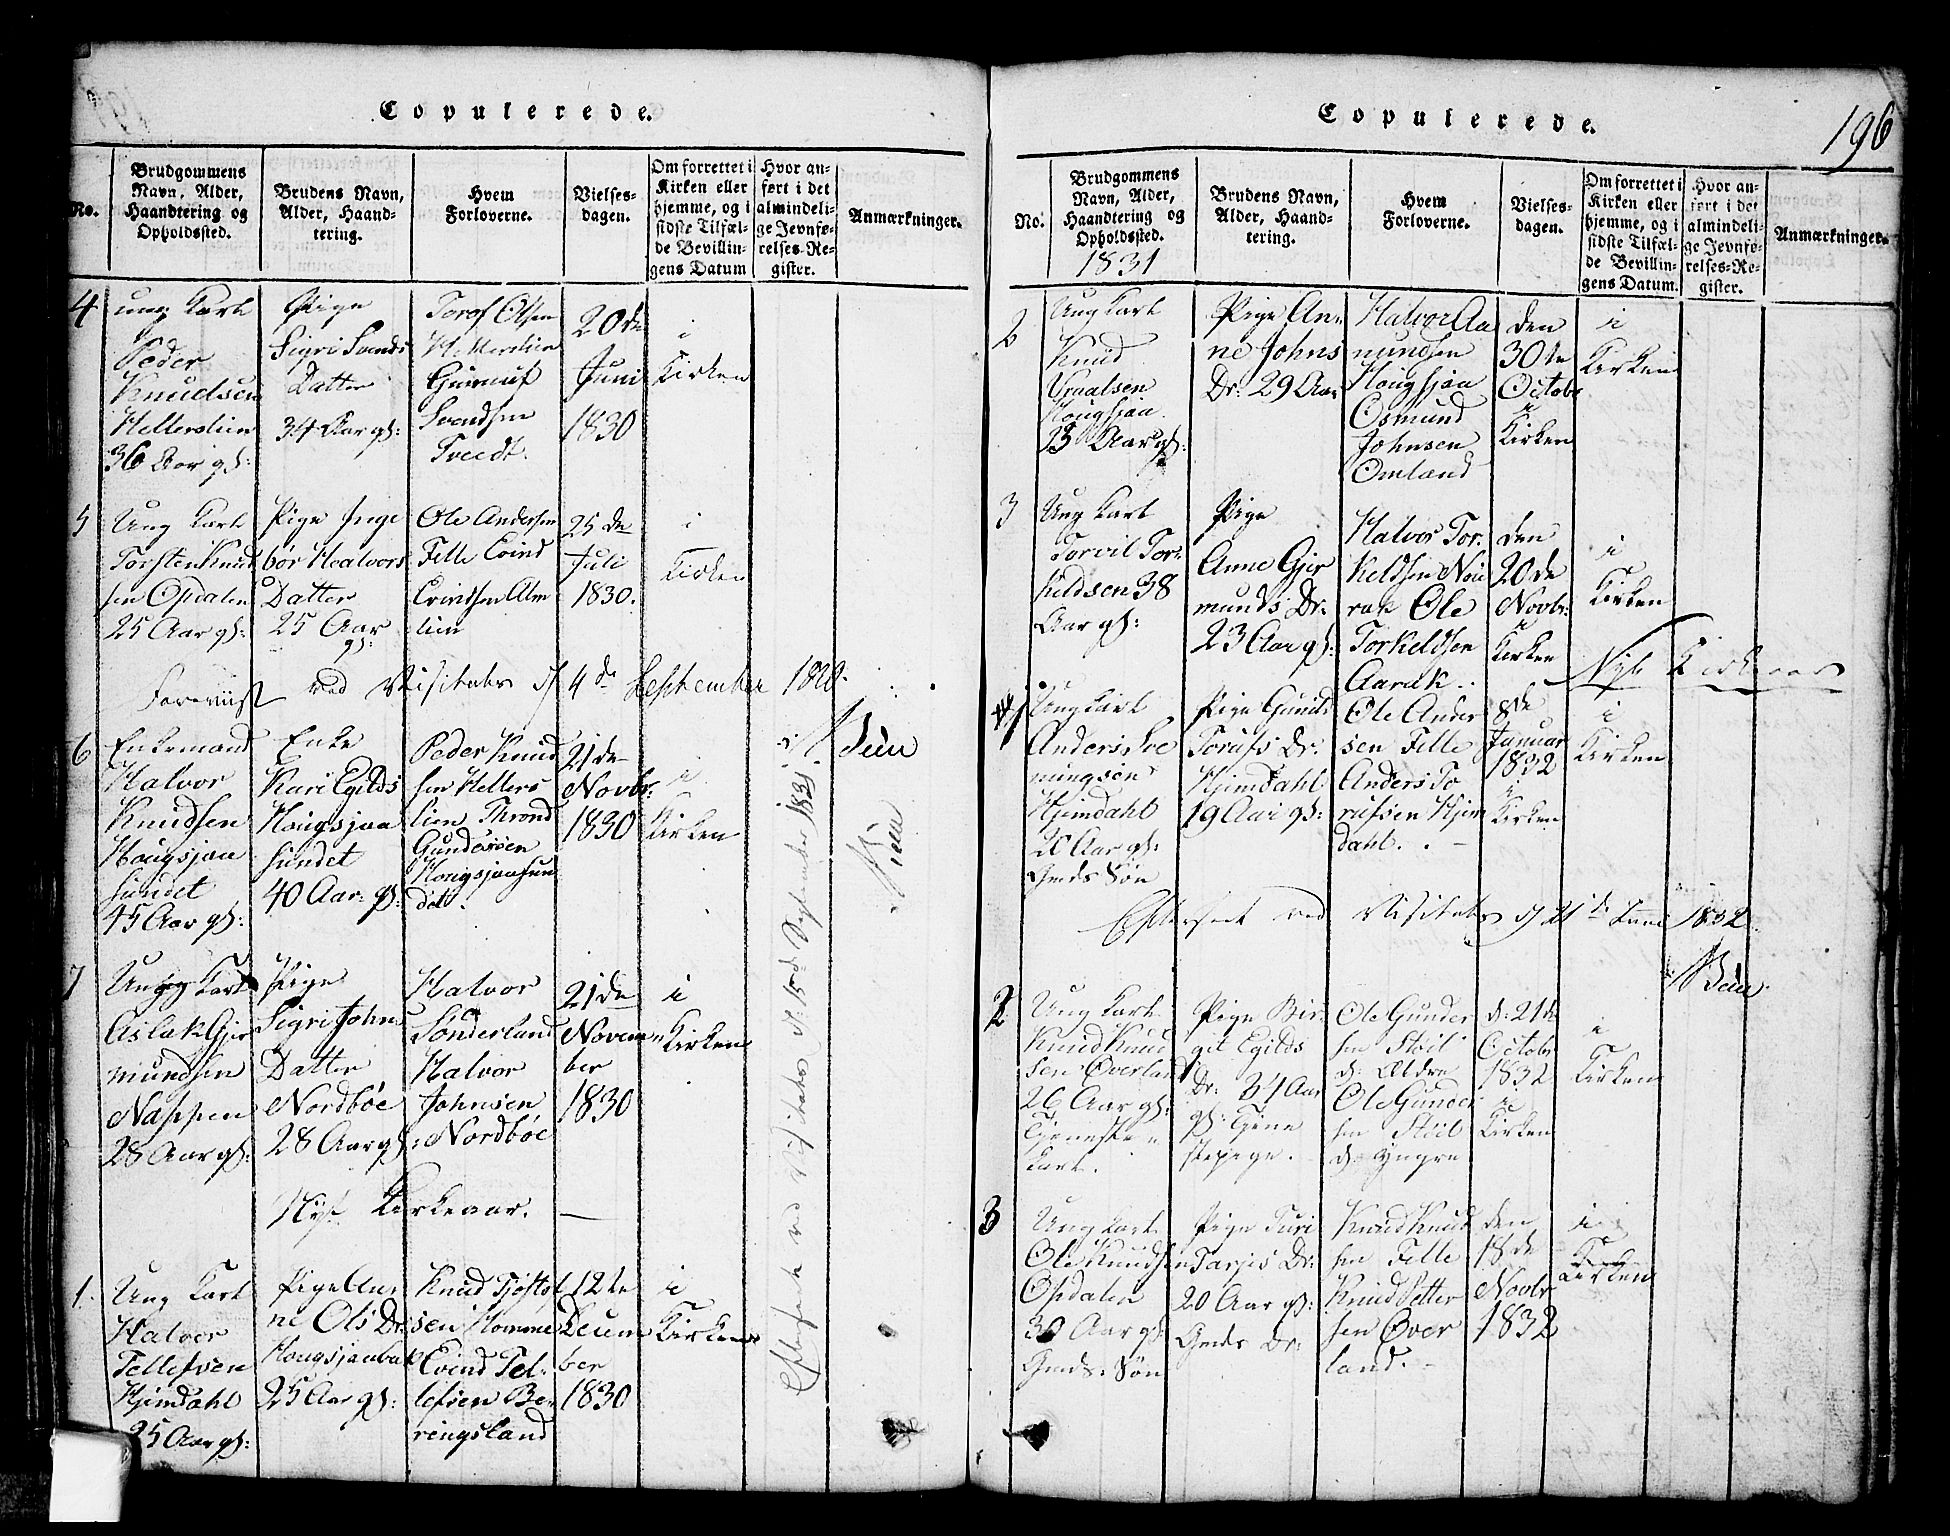 Copulerede.
No.
Brudgommens
Navn, Alder,
Haandtering og
Opholdssted.
Brudens Navn,
Alder, Haand-
tering.
Hvem
Forloverne.
Vielses-
dagen.
Om forrettet i
Kirken eller
hjemme, og i
sidste Tilfæl-
de Bevillin-
gens Datum
Hvor an-
ført i det
almindeli-
ge Jevnfø-
relses-Re-
gister.
Anmærkninger.
4
ung Karl
Peder
Knudsen
Hellerslien
36 Aar gl:
Pige
Sigri Svends
Datter
34 Aar gl:
Torof Olsen
Hellerslien
Gunnuf
Svendsen
Tveedt.
20de
Juni
1830
i
Kirken
5
Ung Karl
Torsten Knud
sen Opdalen
25 Aar gl:
Pige Inge
bør Healvors
Datter
25 Aar
gl:
Ole Andersen
Felle Evind
Evindsen Alm
lien
25 de
Juli
1830.
i
Kirken
Foreviist ved Visitats d 4de September 1830.
Bull
6
Enkemand
Halvor
Knudsen
Hougsjaa
sundet
45 Aar gl:
Enke
Kari Egilds
Hougsjaa
sundet
40 Aar: gl:
Peder Knud
sen Hellers
lien Thrond
Gundersøen
Hougsjaasun
det.
21 de
Novbr:
1830
i
Kirken
7
Ung Karl
Aslak Gjer
mundsen
Nappen
28 Aar gl:
Pige
Sigri Johns
Datter
Nordbøe
28 Aar gl:
Halvor
Sønderland
Halvor
Johnsen
Nordbøe
21 de
Novem
ber
1830
i
Kirken
Nyt Kirkeaar.
1.
Ung Karl
Halvor
Tellefsen
Hjemdahl
25 Aar gl:
Pige An
ne Ols Dr
Hougsjaabak
25 Aar gl:
Knud Tjøstol
sen Homme
Evind Tel-
lefsen Be
ringsland
12 te
Decem
ber
1830
i
Kirken
Efterseet ved Visitats d: 15de September 1831
Copulerede.
196
No.
Brudgommens
Navn, Alder,
Haandtering og
Opholdssted.
1831
Brudens Navn,
Alder, Haand-
tering.
Hvem
Forloverne.
Vielses-
dagen.
Om forrettet i
Kirken eller
hjemme, og i
sidste Tilfæl-
de Bevillin-
gens Datum.
Hvor an-
ført i det
almindeli-
ge Jevnfø-
relses-Re-
gister.
Anmærkninger.
2
Ung Karl
Knud
Vraalsen
Hougsjaa
Aar gl:
Pige An-
ne Johns
Dr: 29 Aar
Halvor Aa
nundsen
Hougsjaa
Osmund
Johnsen
Omland
den
30te
Octobr
i
Kirken
i
Kirken
3
Ung Karl
Torvil Tor-
kieldsen 38
Aar gl:
Pige
Anne Gjer
munds Dr:
23 Aar gl:
Halvor Tor-
keldsen
Ole
Torkeldsen
Aarak.
den
20de
Novbr:
i
Kirken
i
Kirken
Nyt Kirkeaar
1
Ung Karl
Anders Soe
ningsen
Hjemdahl
20 Aar gl:
Gmds Søn
Pige Gunild
Torufs Dr:
Hjemdahl
19 Aar gl:
Ole Ander
sen Felle
Anders To
rufsen Hjem
dahl.
8de
Januar
1832
i
Kirken
i
Kirken
Efterseet ved Visitats d 21de Juni 1832.
2
Ung Karl
Knud Knud
sen Øverland
26 Aar gl:
Tjeneste
Karl.
Pige Bir-
git Egilds
Dr: 34 Aar
gl: Tjene
stepige.
Ole Gunder
sen Støil
d: Ældre
Ole Gunder
sen Støil
d: Yngre
d: 21de
Octobr
1832
i
Kirken
i
Kirken
3
Ung Karl
Ole Knudsen
Opdalen
30 Aar gl:
Gmds: Søn
Pige Turi
Tarjis Dr:
20 Aar gl:
Gmds Dr:
Knud Knud
sen Felle
Knud Petter
sen Øver
land.
den
18de
Novbr
1832
i
Kirken